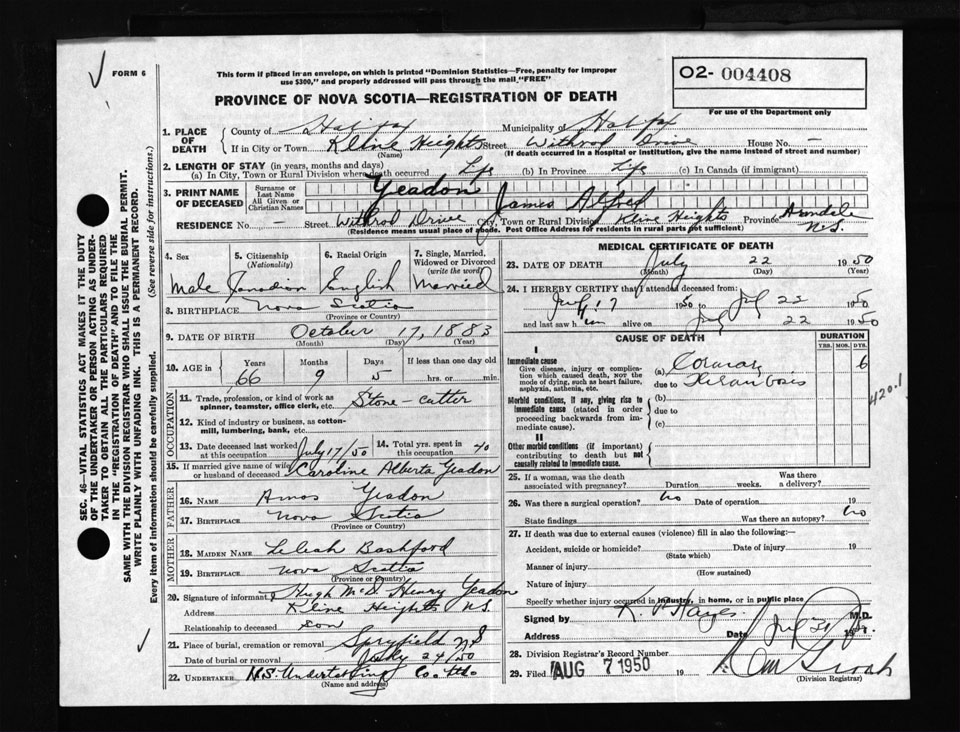 FORM 6
This form if placed in an envelope, on which is printed "Dominion Statistics—Free, penalty for improper
use $300," and properly addressed will pass through the mail, "FREE"
O2- 004408
For use of the Department only
PROVINCE OF NOVA SCOTIA—REGISTRATION OF DEATH
1. PLACE OF DEATH
County of Halifax Municipality of Halifax
If in City or Town Kline Heights Street Withrod Drive House No. —
(Name) (If death occurred in a hospital or institution, give the name instead of street and number)
2. LENGTH OF STAY (in years, months and days)
(a) In City, Town or Rural Division where death occurred Life (b) In Province Life (c) In Canada (if immigrant)
3. PRINT NAME OF DECEASED
Surname or Last Name Yeadon
All Given or Christian Names James Alfred
RESIDENCE No. — Street Withrod Drive City, Town or Rural Division Kline Heights Province Armdale N.S.
(Residence means usual place of abode. Post Office Address for residents in rural parts not sufficient)
4. Sex
Male
5. Citizenship (Nationality)
Canadian
6. Racial Origin
English
7. Single, Married, Widowed or Divorced (write the word)
Married
8. BIRTHPLACE Nova Scotia
(Province or Country)
9. DATE OF BIRTH October 17, 1883
(Month) (Day) (Year)
10. AGE in Years Months Days If less than one day old
66 9 5 hrs. or min.
OCCUPATION
11. Trade, profession, or kind of work as
spinner, teamster, office clerk, etc. Stone-cutter
12. Kind of industry or business, as cotton-
mill, lumbering, bank, etc.
13. Date deceased last worked at this occupation July 17/50
14. Total yrs. spent in this occupation 40
15. If married give name of wife or husband of deceased Caroline Alberta Yeadon
FATHER
16. NAME Amos Yeadon
17. BIRTHPLACE Nova Scotia
(Province or Country)
MOTHER
18. MAIDEN NAME Leleah Bashford
19. BIRTHPLACE Nova Scotia
(Province or Country)
20. Signature of informant Hugh McD. Henry Yeadon
Address Kline Heights N.S.
Relationship to deceased son
21. Place of burial, cremation or removal Spryfield N.S
Date of burial or removal July 24/50
22. UNDERTAKER N.S. Undertaking Co. Ltd
(Name and address)
MEDICAL CERTIFICATE OF DEATH
23. DATE OF DEATH July 22 1950
(Month) (Day) (Year)
24. I HEREBY CERTIFY that I attended deceased from:
July 17 1950 to July 22 1950
and last saw him alive on July 22 1950
CAUSE OF DEATH
DURATION
YRS. MOS. DYS.
I
Immediate cause
Give disease, injury or complication which caused death, not the mode of dying, such as heart failure, asphyxia, asthenia, etc.
(a) Coronary 6
due to Thrombosis
420.1
Morbid conditions, if any, giving rise to immediate cause (stated in order proceeding backwards from immediate cause).
(b)
due to
(c)
II
Other morbid conditions (if important) contributing to death but not causally related to immediate cause.
25. If a woman, was the death associated with pregnancy? Duration weeks. Was there a delivery?
26. Was there a surgical operation? No Date of operation 19
State findings Was there an autopsy? No
27. If death was due to external causes (violence) fill in also the following:—
Accident, suicide or homicide? Date of injury 19
(State which)
Manner of injury
(How sustained)
Nature of injury
Specify whether injury occurred in industry, in home, or in public place
Signed by Hayes M.D.
Address Date July 31 1950
28. Division Registrar's Record Number
29. Filed AUG 7 1950 19
(Division Registrar)
SEC. 46—VITAL STATISTICS ACT MAKES IT THE DUTY
OF THE UNDERTAKER OR PERSON ACTING AS UNDER-
TAKER TO OBTAIN ALL THE PARTICULARS REQUIRED
IN THE "REGISTRATION OF DEATH" AND TO FILE THE
SAME WITH THE DIVISION REGISTRAR WHO SHALL ISSUE THE BURIAL PERMIT.
WRITE PLAINLY WITH UNFADING INK. THIS IS A PERMANENT RECORD.
Every item of information should be carefully supplied. (See reverse side for instructions.)